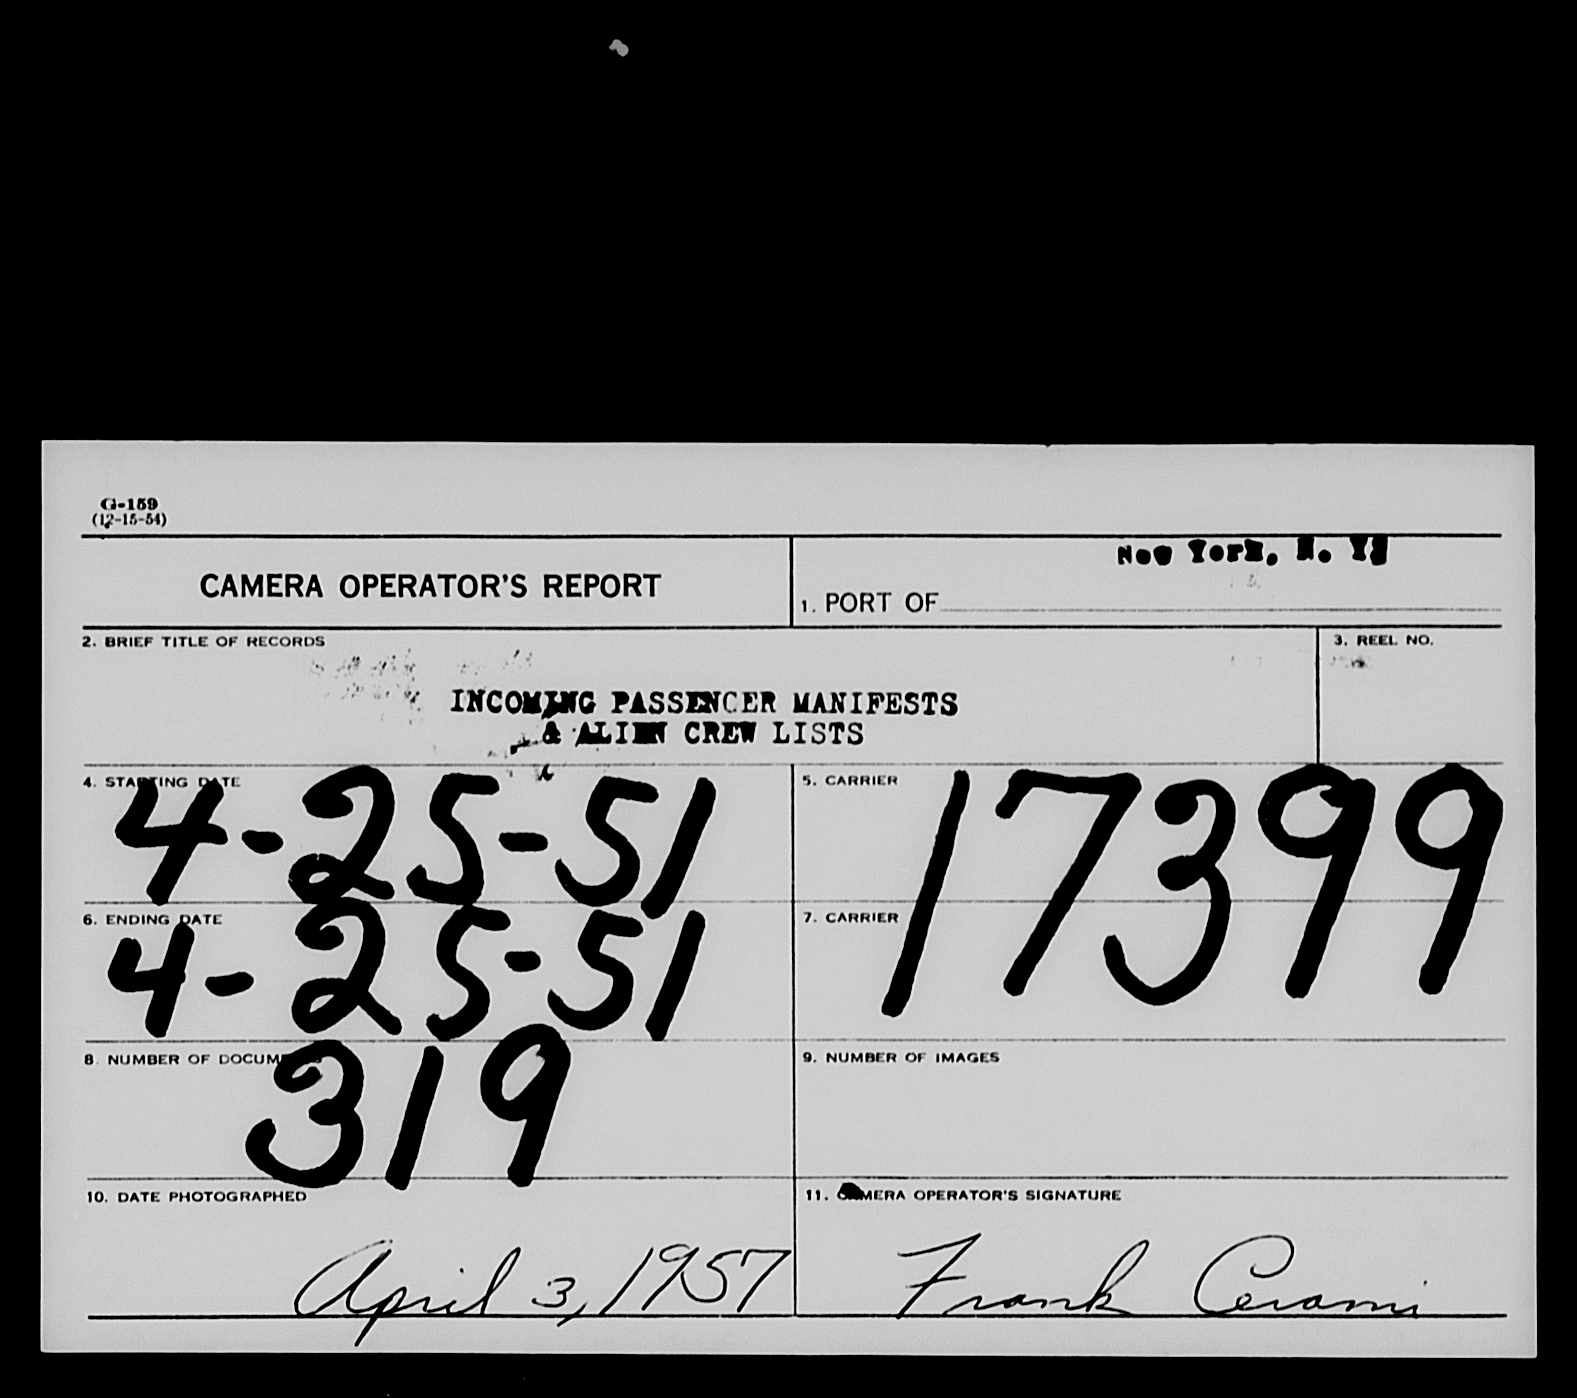 G-159
(12-15-54)
CAMERA OPERATOR'S REPORT
New York, N. Y.
1. PORT OF
2. BRIEF TITLE OF RECORDS
3. REEL NO.
INCOMING PASSENGER MANIFESTS
& ALIEN CREW LISTS
4. STARTING DATE
4-25-51
5. CARRIER
17399
6. ENDING DATE
4-25-51
7. CARRIER
8. NUMBER OF DOCUMENTS
319
9. NUMBER OF IMAGES
10. DATE PHOTOGRAPHED
April 3, 1957
11. CAMERA OPERATOR'S SIGNATURE
Frank Cerami